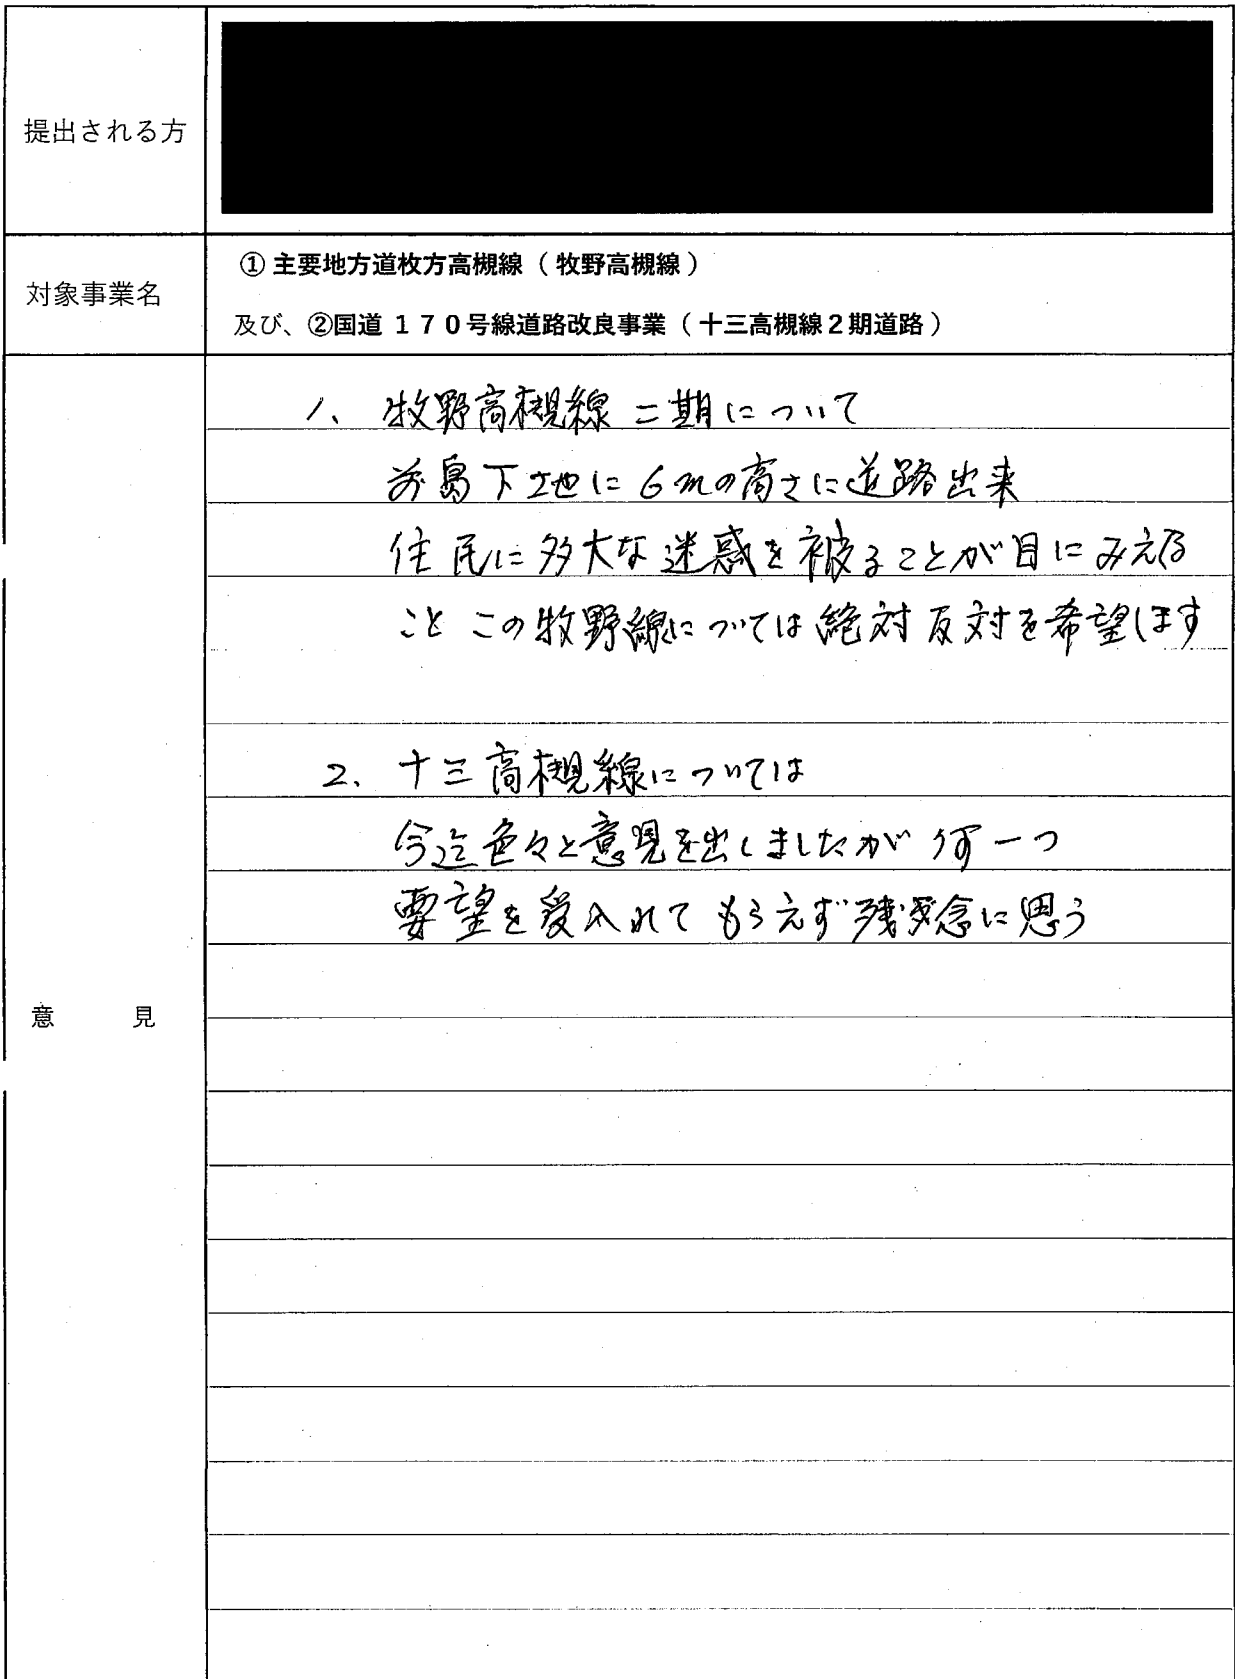 提出される方
対象事業名
① 主要地方道枚方高槻線（牧野高槻線）
及び、②国道１７０号線道路改良事業（十三高槻線２期道路）
意見
1、牧野高槻線二期について
前島下地に6mの高さに道路出来
住民に多大な迷惑を被ることが目にみえる
こと この牧野線については絶対反対を希望します
2、十三高槻線については
今迄色々と意見を出しましたが何一つ
要望を受入れてもらえず残念に思う